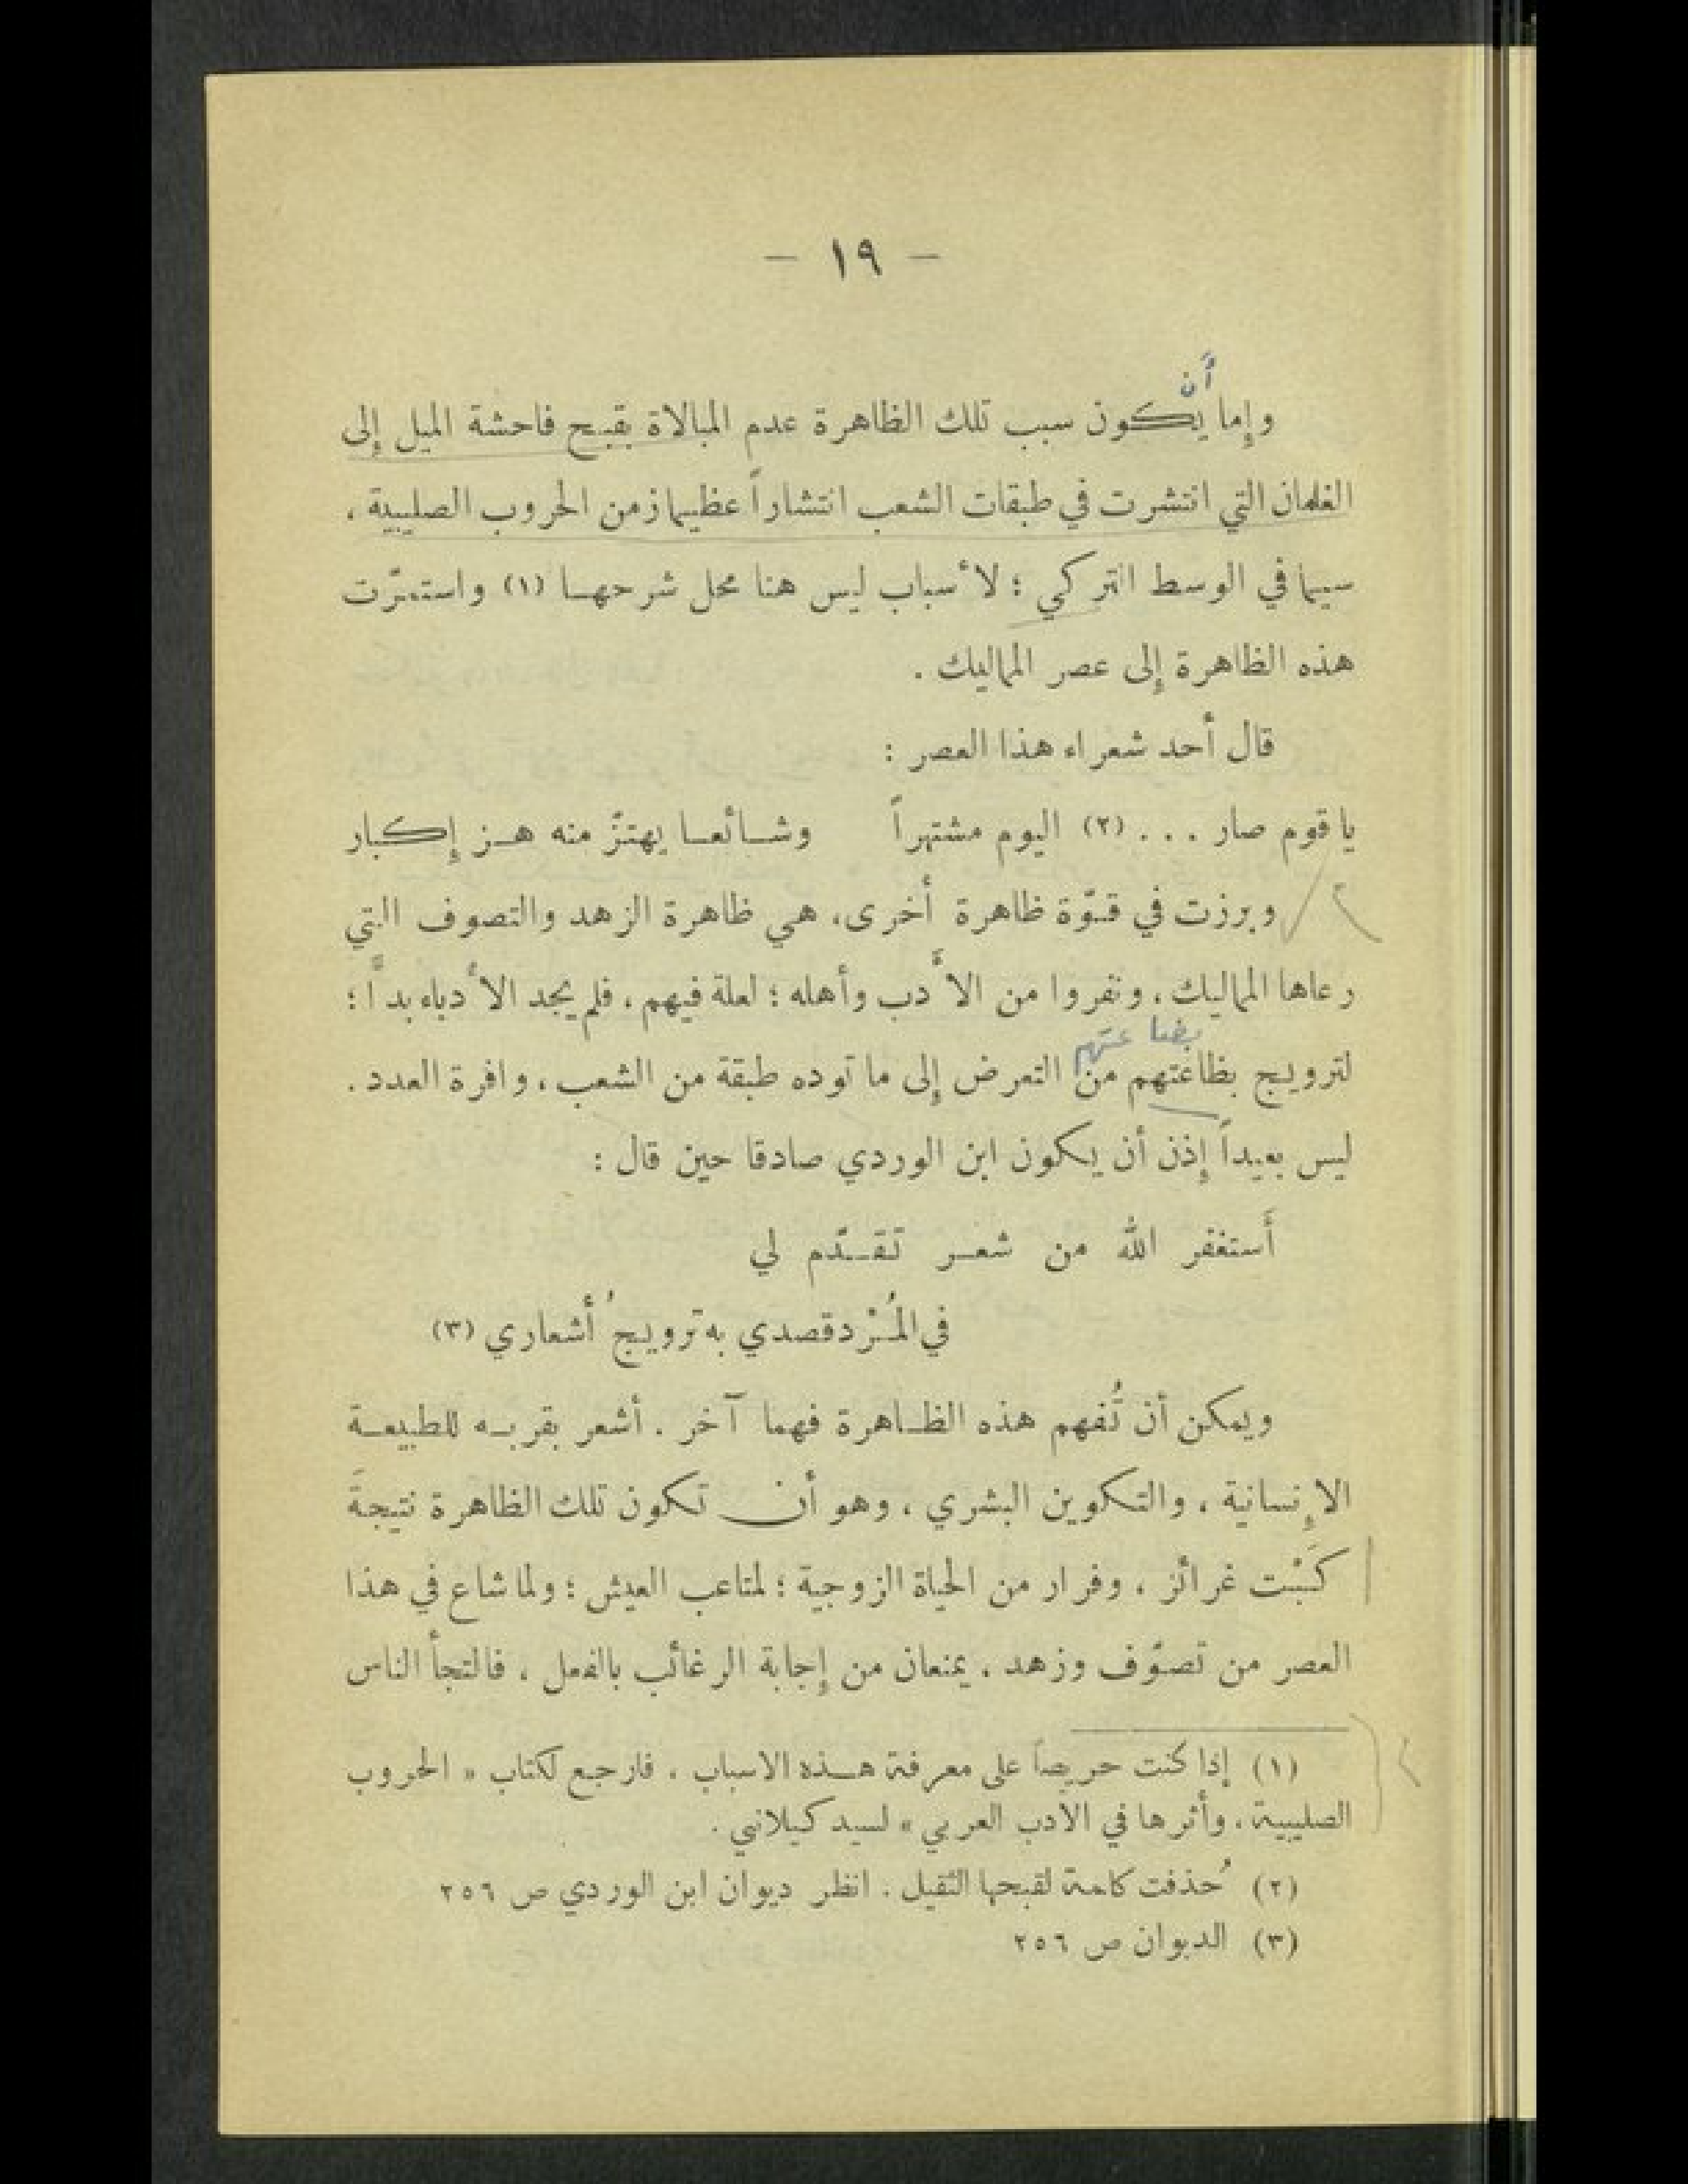 - ١٩ -
أن
وإما يكون سبب تلك الظاهرة عدم المبالاة بقبح فاحشة الميل إلى
الغلمان التي انتشرت في طبقات الشعب انتشاراً عظيما زمن الحروب الصليبية ،
سيما في الوسط التركي ؛ لأسباب ليس هنا محل شرحها (١) واستمرّت
هذه الظاهرة إلى عصر المماليك .
قال أحد شعراء هذا العصر :
يا قوم صار . . . (٢) اليوم مشتهراً وشائعا يهتزّ منه هز إكبار
وبرزت في قوّة ظاهرة أخرى ، هي ظاهرة الزهد والتصوف التي
رعاها المماليك ، ونفروا من الأدب وأهله ؛ لعلة فيهم ، فلم يجد الأدباء بداً ؛
بضاعتهم
لترويج بظاعتهم من التعرض إلى ما توده طبقة من الشعب ، وافرة العدد .
ليس بعيداً إذن أن يكون ابن الوردي صادقا حين قال :
أَستغفر الله من شعر تقدّم لي
في المُرْد قصدي به ترويجُ أشعاري (٣)
ويمكن أن تُفهم هذه الظاهرة فهما آخر . أشعر بقربه للطبيعة
الإنسانية ، والتكوين البشري ، وهو أن تكون تلك الظاهرة نتيجةَ
كَبْت غرائز ، وفرار من الحياة الزوجية ؛ لمتاعب العيش ؛ ولما شاع في هذا
العصر من تصوّف وزهد ، يمنعان من إجابة الرغائب بالفعل ، فالتجأ الناس
(١) إذا كنت حريصاً على معرفة هذه الاسباب ، فارجع لكتاب « الحروب
الصليبية ، وأثرها في الأدب العربي » لسيد كيلاني .
(٢) حُذفت كلمة لقبحها الثقيل . انظر ديوان ابن الوردي ص ٢٥٦
(٣) الديوان ص ٢٥٦